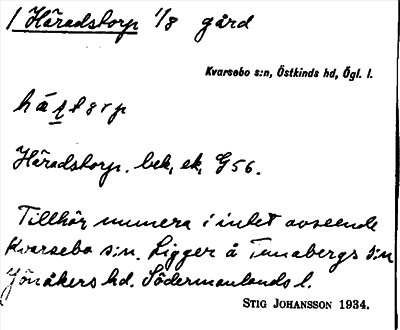 / Häradstorp 1/8 gård
Kvarsebo s:n, Östkinds hd, Ögl. l.
Häradstorp. bek. ek. G 56.
Tillhör numera i intet avseende
Kvarsebo s:n. Ligger å Tunabergs s:n
Jönåkers hd. Södermanlands l.
STIG JOHANSSON 1934.